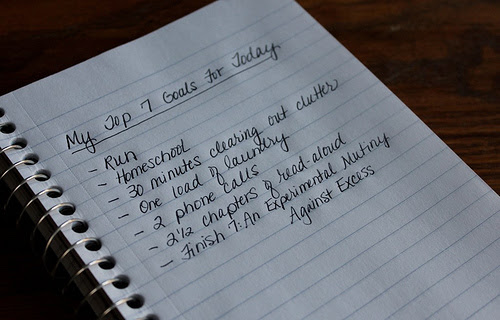 My Top 7 Goals For Today
- Run
- Homeschool
- 30 minutes clearing out clutter
- One load of laundry
- 2 phone calls
- 2 1/2 chapters of read-aloud
- Finish 7: An Experimental Mutiny
Against Excess